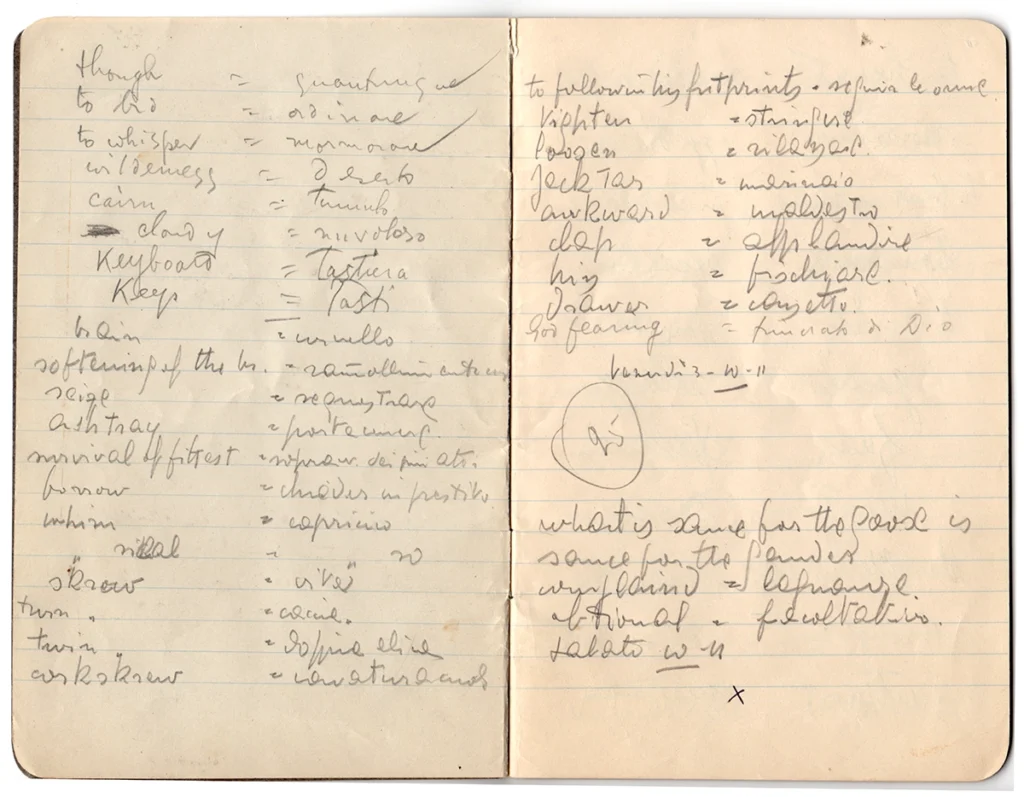 though = quantunque
to bid = ordinare
to whisper = mormorare
wilderness = Deserto
cairn = Tumulo
cloudy = nuvoloso
Keyboard = Tastiera
Keys = Tasti
brain = cervello
softening of the br. = rammollimento
seize = sequestrare
ashtray = portacener.
survival of fittest = sopravv. dei più atti
borrow = chieder in prestito
whim = capriccio
" sical = " so
skrew = vite
twin " =
twin " = doppia elica
corkskrew = cavaturaccioli
to follow in his footprints = seguir le orme
tighten = stringere
loosen = rilasciare.
Jack Tar = marinaio
awkward = maldestro
clap = applaudire
hiss = fischiare.
Drawer = cassetto.
God fearing = timorato di Dio
Venerdì 3-10-11
what is sauce for the goose is
sauce for the gander
complaind = lagnanze
obtional = facoltativo.
Sabato 10-11
x